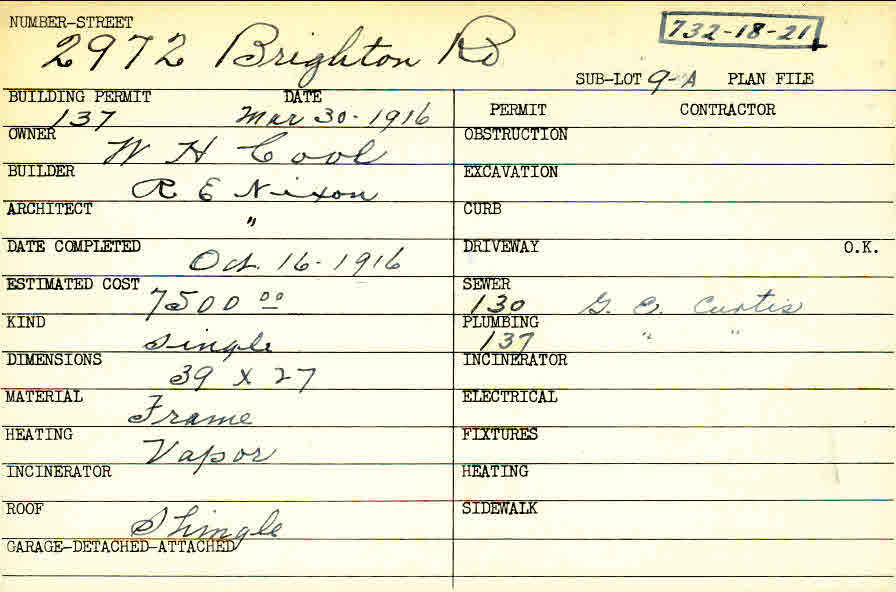 NUMBER-STREET
2972 Brighton Rd
732-18-21
SUB-LOT 9-A PLAN FILE
BUILDING PERMIT DATE
137 Mar 30-1916
OWNER
W H Cool
BUILDER
R E Nixon
ARCHITECT
"
DATE COMPLETED
Oct. 16-1916
ESTIMATED COST
7500 00
KIND
Single
DIMENSIONS
39 x 27
MATERIAL
Frame
HEATING
Vapor
INCINERATOR
ROOF
Shingle
GARAGE-DETACHED-ATTACHED
PERMIT CONTRACTOR
OBSTRUCTION
EXCAVATION
CURB
DRIVEWAY O.K.
SEWER
130 G. E. Curtis
PLUMBING
137 " "
INCINERATOR
ELECTRICAL
FIXTURES
HEATING
SIDEWALK